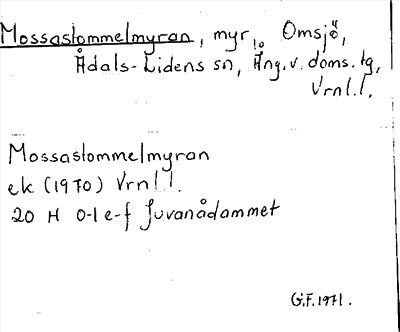 Mossastommelmyran, myr, Omsjö,
Ådals-Lidens sn, Ång.v.doms.tg,
Vrnl.l.
Mossastommelmyran
ek (1970) Vrnl l.
20 H 0-1 e-f Juvanådammet
G.F. 1971.